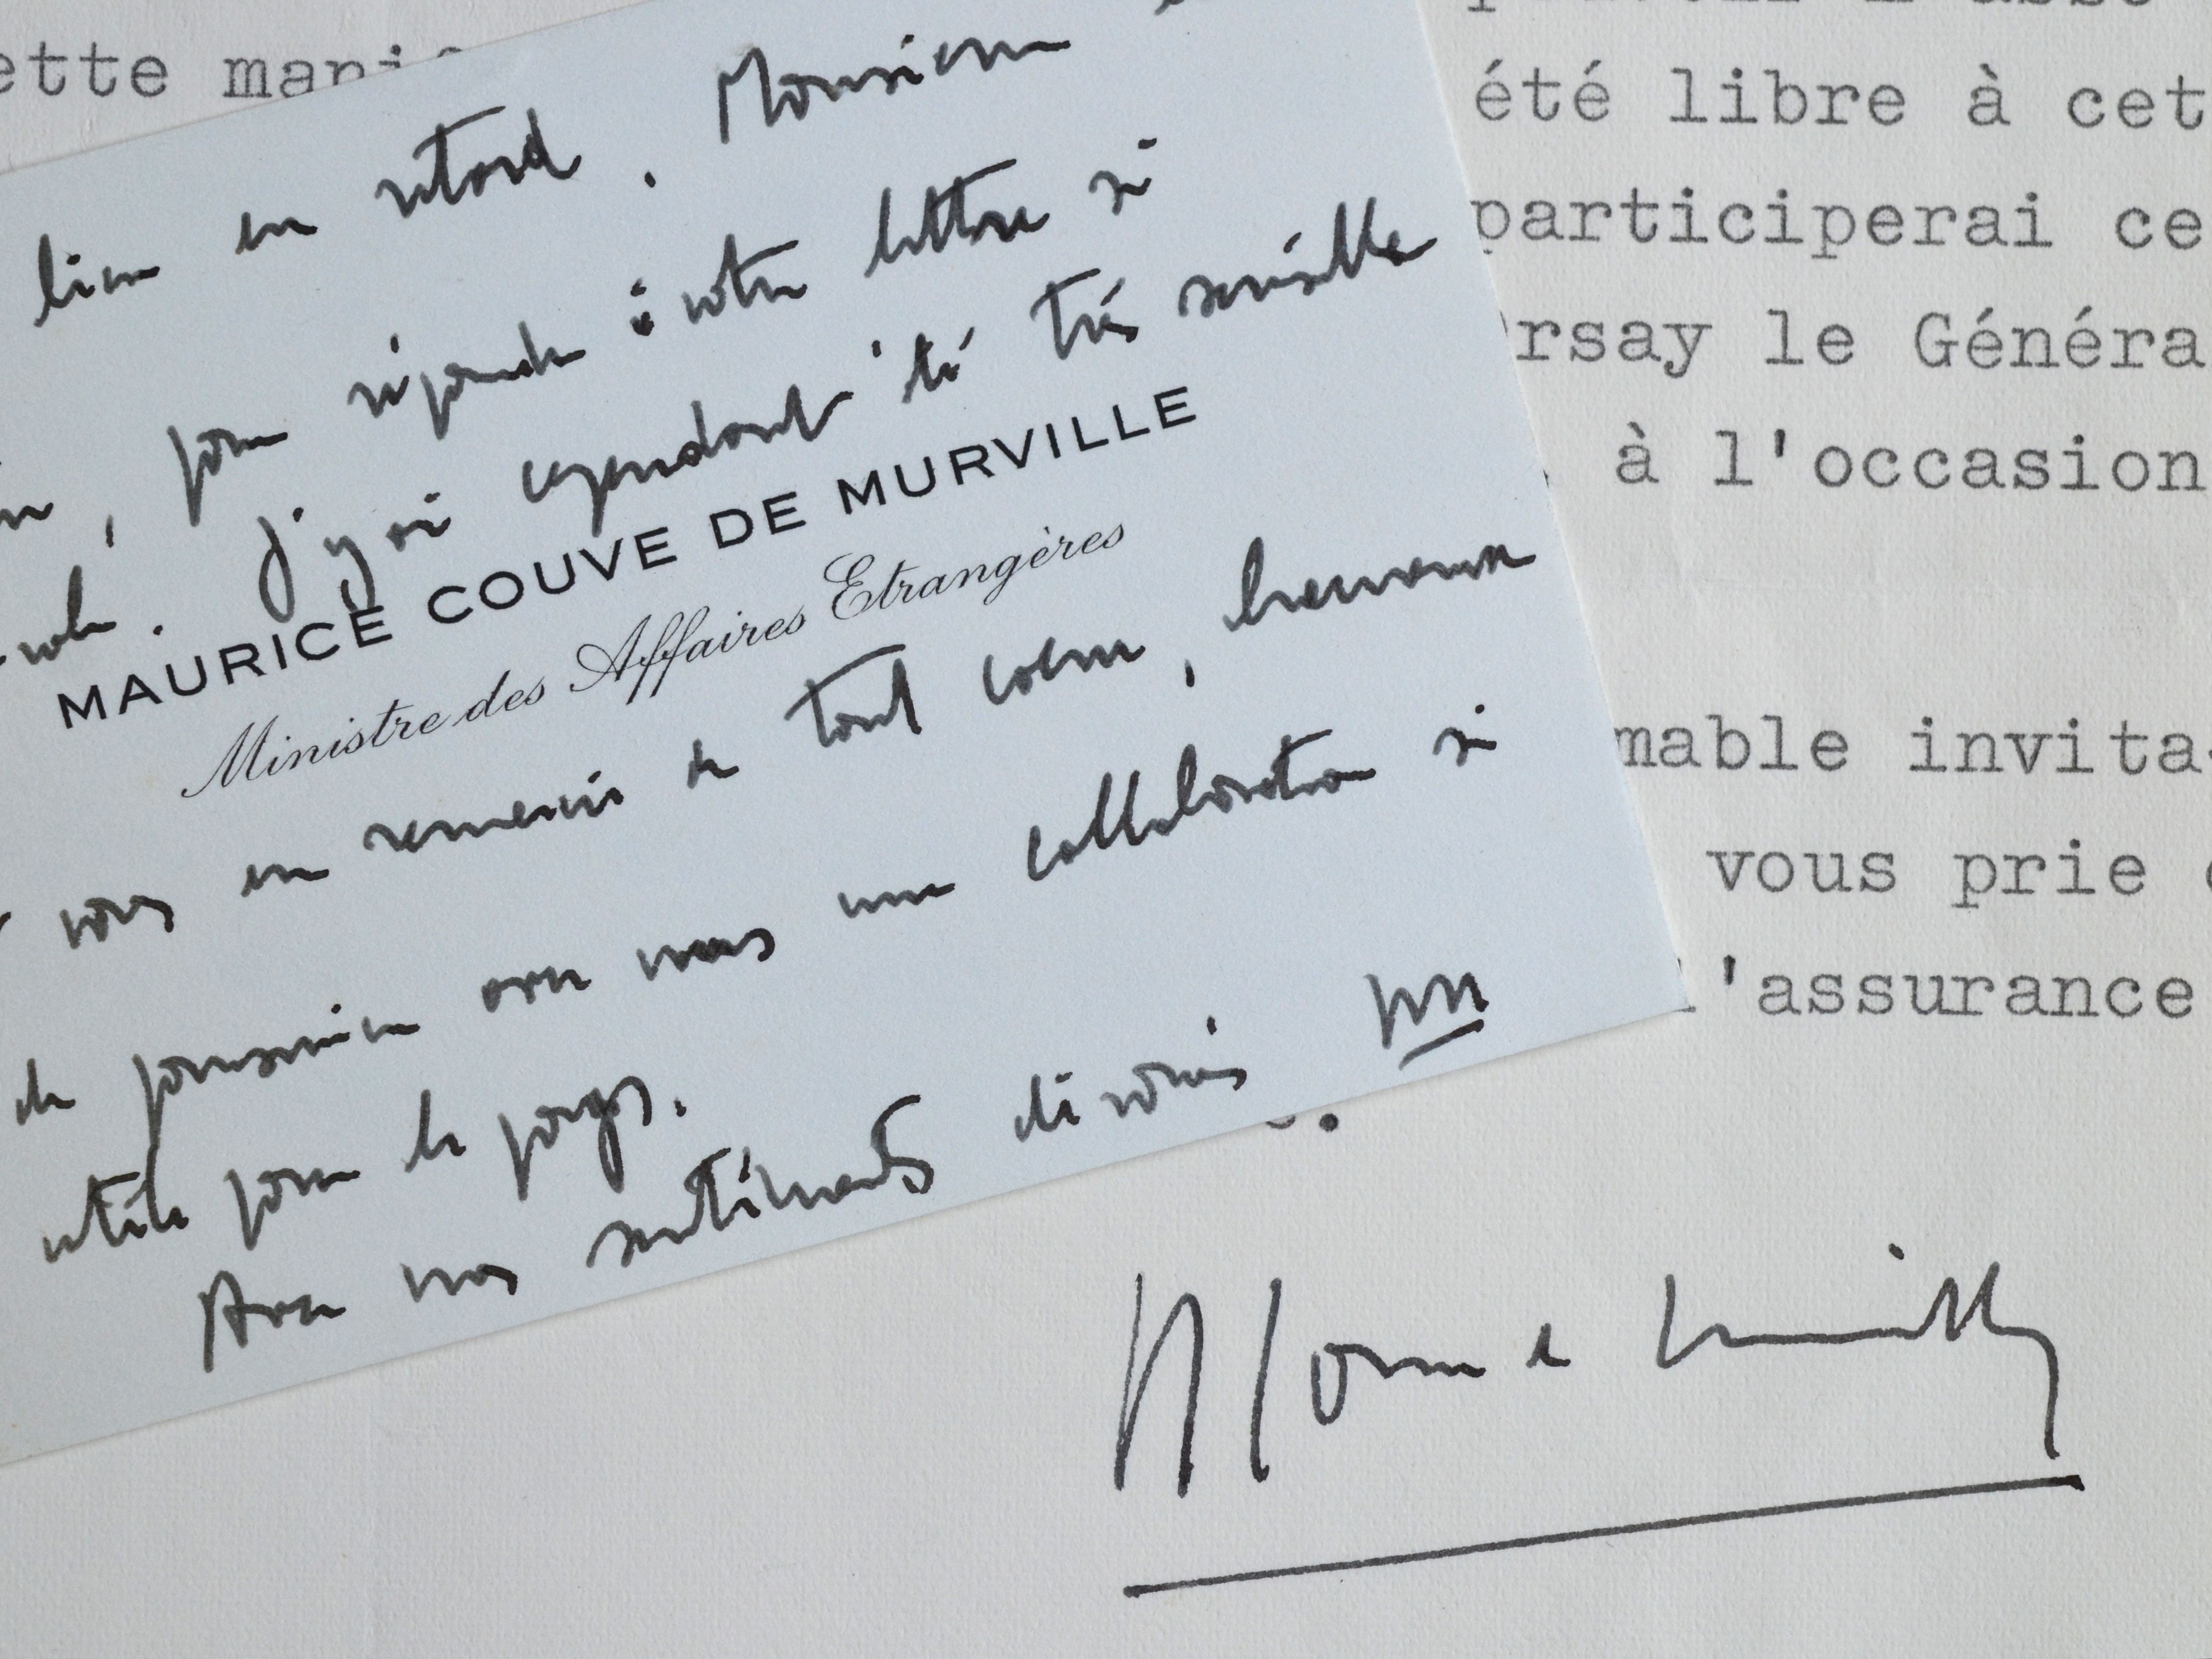 bien en retard, Monsieur
, pour répondre à votre lettre si
. J'y ai cependant été très sensible
MAURICE COUVE DE MURVILLE
Ministre des Affaires Etrangères
vous en remercie de tout coeur, heureux
de poursuivre avec vous une collaboration si
utile pour le pays.
Avec mes sentiments dévoués
ette mani
été libre à cet
participerai ce
rsay le Généra
à l'occasion
mable invita-
vous prie
l'assurance
M Couve de Murville